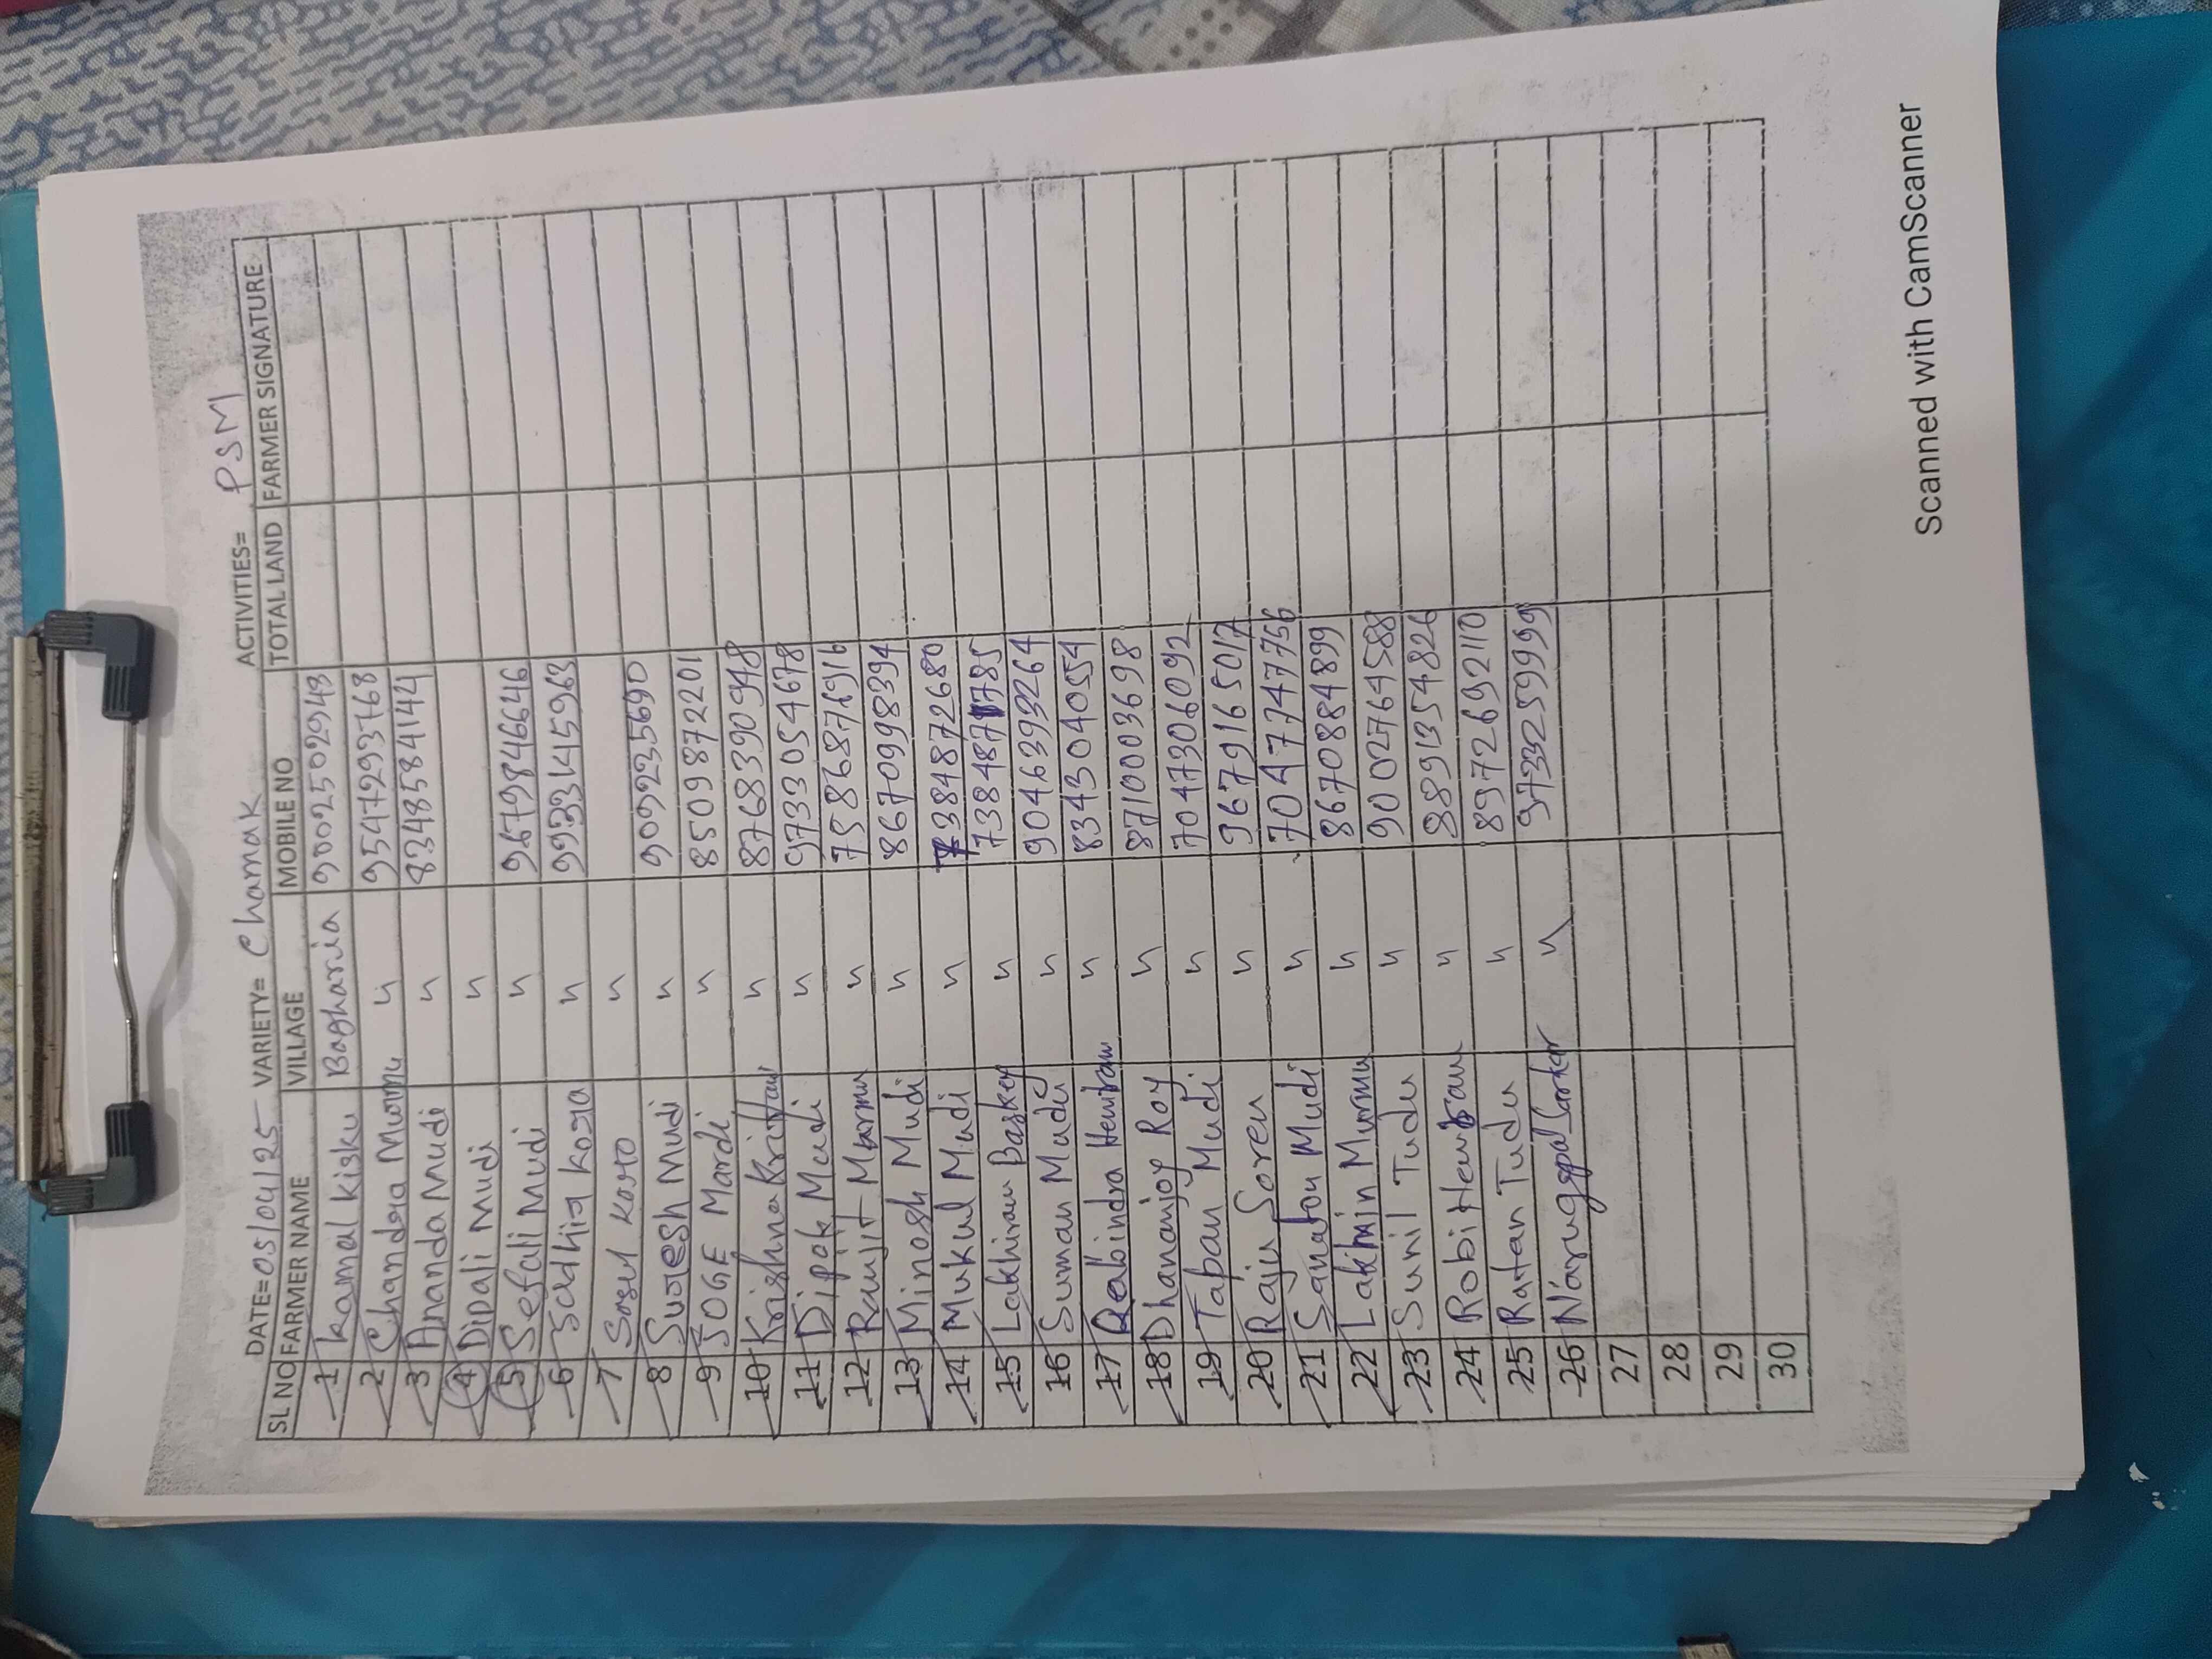 DATE=05/04/25 VARIETY= Chamak ACTIVITIES= PSM
SL NO FARMER NAME VILLAGE MOBILE NO TOTAL LAND FARMER SIGNATURE
1 Kamal Kisku Bagharia 9002502943
2 Chandra Murmu " 9547293768
3 Ananda Mudi " 8348584144
4 Dipali Mudi "
5 Sefali Mudi " 9679846646
6 "
7 "
8 Suresh Mudi " 9092235690
9 JOGE Mardi " 8509872201
10 Krishna " 8768390948
11 Dipak Mudi " 9733054678
12 Ranjit Murmu " 7586876916
13 Minosh Mudi " 8670998394
14 Mukul Mudi " 7384872680
15 Lakhiram Baskey "
16 Suman Mudi " 9046393264
17 Rabindra Hembram " 8343040554
18 Dhananjoy Roy " 8710003698
19 Tapan Mudi " 7047306092
20 Raju Soren " 9679165017
21 Sanatan Mudi " 7047747756
22 Lakhmin Murmu " 8670884899
23 Sunil Tudu " 9002764588
24 Robi Hembram " 8891354826
25 Ratan Tudu " 8972692110
26 Narugopal Sarkar " 9733259999
27
28
29
30
Scanned with CamScanner